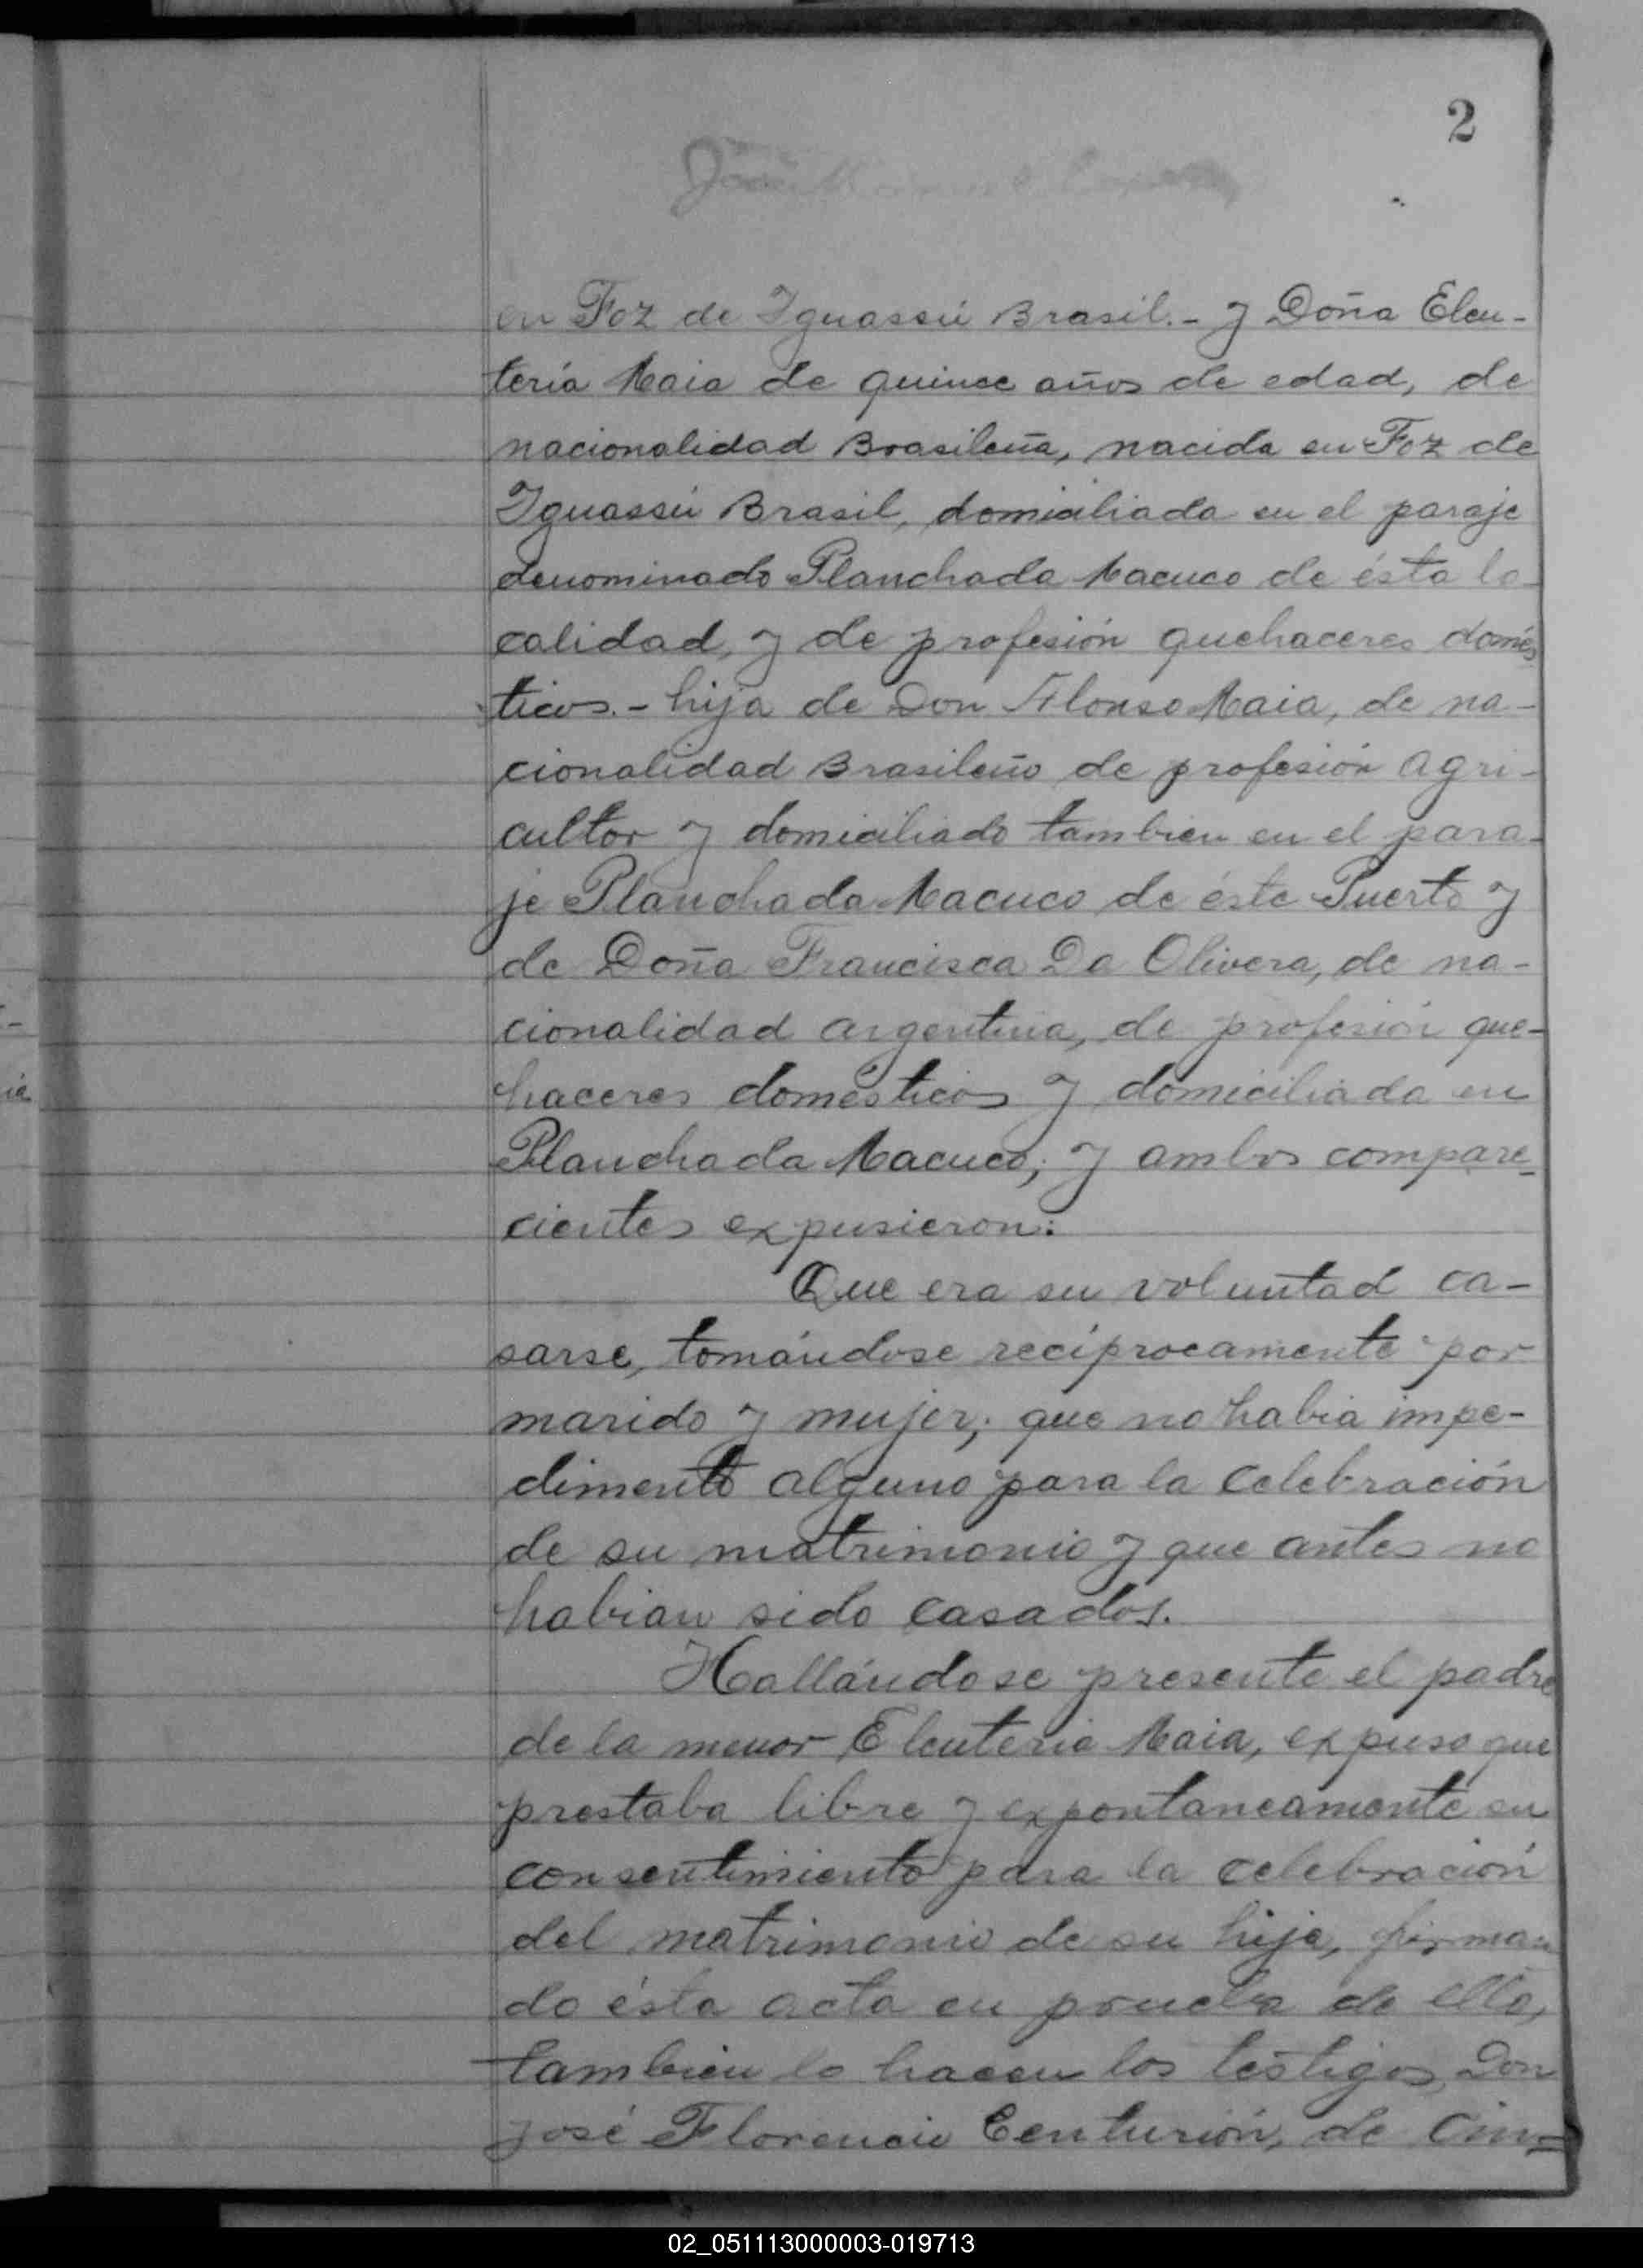 2
en Foz de Iguassú Brasil.- y Doña Eleu-
tería Maia de quince años de edad, de
nacionalidad Brasileña, nacida en Foz de
Iguassú Brasil, domiciliada en el paraje
denominado Planchada Macuco de ésta lo-
calidad, y de profesión quehaceres domés
ticos.- hija de Don Alonso Maia, de na-
cionalidad Brasileño de profesión agri-
cultor y domiciliado tambien en el para-
je Planchada Macuco de éste Puerto y
de Doña Francisca Da Olivera, de na-
cionalidad argentina, de profesión que-
haceres domésticos y domiciliada en
Planchada Macuco; y ambos compare-
cientes expusieron:
Que era su voluntad ca-
sarse, tomándose recíprocamente por
marido y mujer; que no habia impe-
dimento alguno para la celebración
de su matrimonio y que antes no
habian sido casados.
Hallándose presente el padre
de la menor Eleuteria Maia, expuso que
prestaba libre y expontaneamente su
consentimiento para la celebración
del matrimonio de su hija, firman
do ésta acta en prueba de ello,
tambien lo hacen los testigos, Don
José Florencio Centurión, de Cin=
02_051113000003-019713